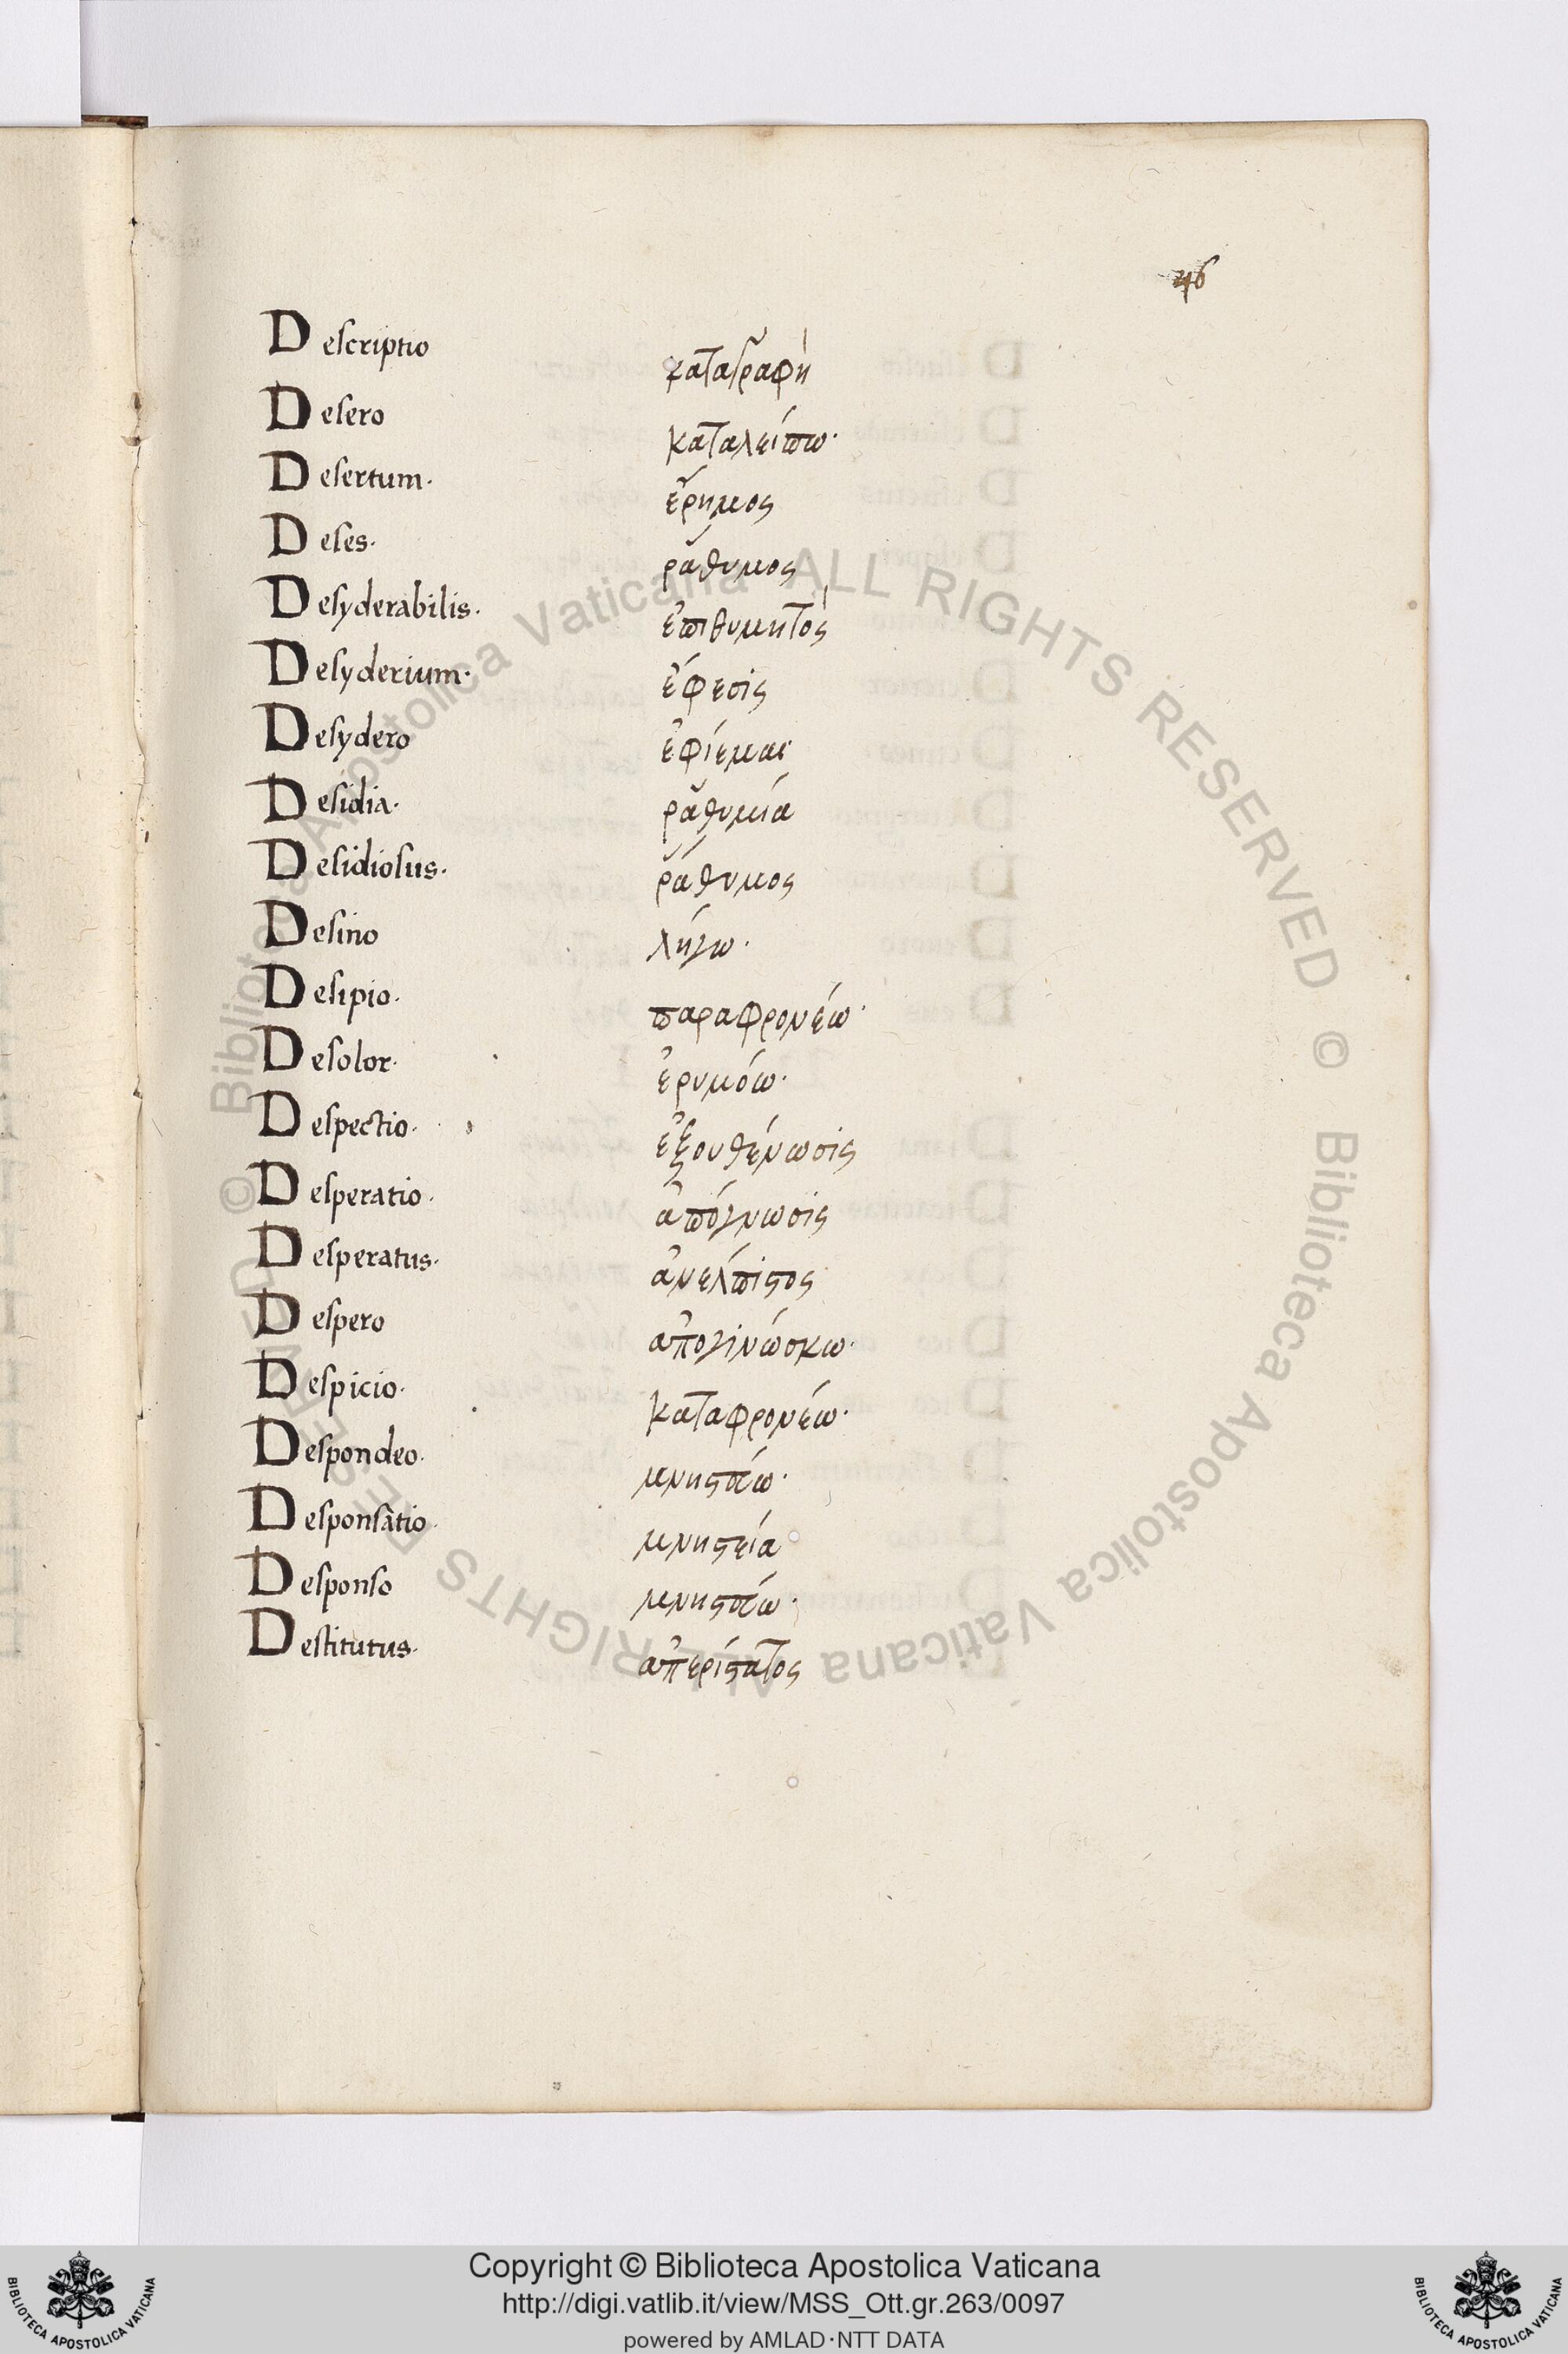 46
Descriptio καταγραφὴ
Desero καταλείπω·
Desertum· ἔρημος
Deses· ῥάθυμος
Desyderabilis· ἐπιθυμητὸς
Desyderium· ἔφεσις
Desydero ἐφίεμαι
Desidia· ῥαθυμία
Desidiosus· ῥάθυμος
Desino λήγω·
Desipio· παραφρονέω·
Desolor· ἐρυμόω·
Despectio· ἐξουθένωσις
Desperatio· ἀπόγνωσις
Desperatus· ἀνέλπιστος
Despero ἀπογινώσκω·
Despicio· καταφρονέω·
Despondeo·
Desponsatio· μνηστεία
Desponso
Destitutus· ἀπερίστατος
© Biblioteca Apostolica Vaticana ALL RIGHTS RESERVED © Biblioteca Apostolica Vaticana ALL RIGHTS RESERVED
Copyright © Biblioteca Apostolica Vaticana
http://digi.vatlib.it/view/MSS_Ott.gr.263/0097
powered by AMLAD·NTT DATA
BIBLIOTECA APOSTOLICA VATICANA
BIBLIOTECA APOSTOLICA VATICANA